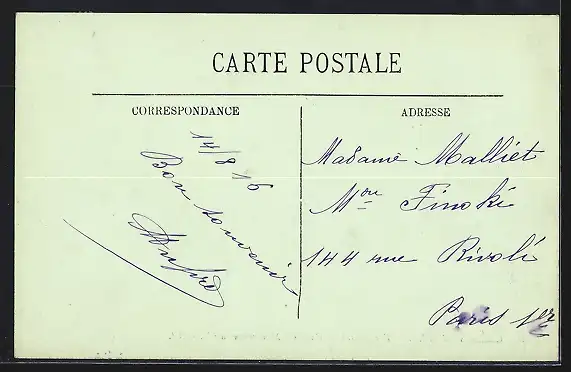 CARTE POSTALE
CORRESPONDANCE
ADRESSE
14/8 16
Bon souvenir
Madame Malliét
Mon Finoki
144 rue Rivoli
Paris 1er